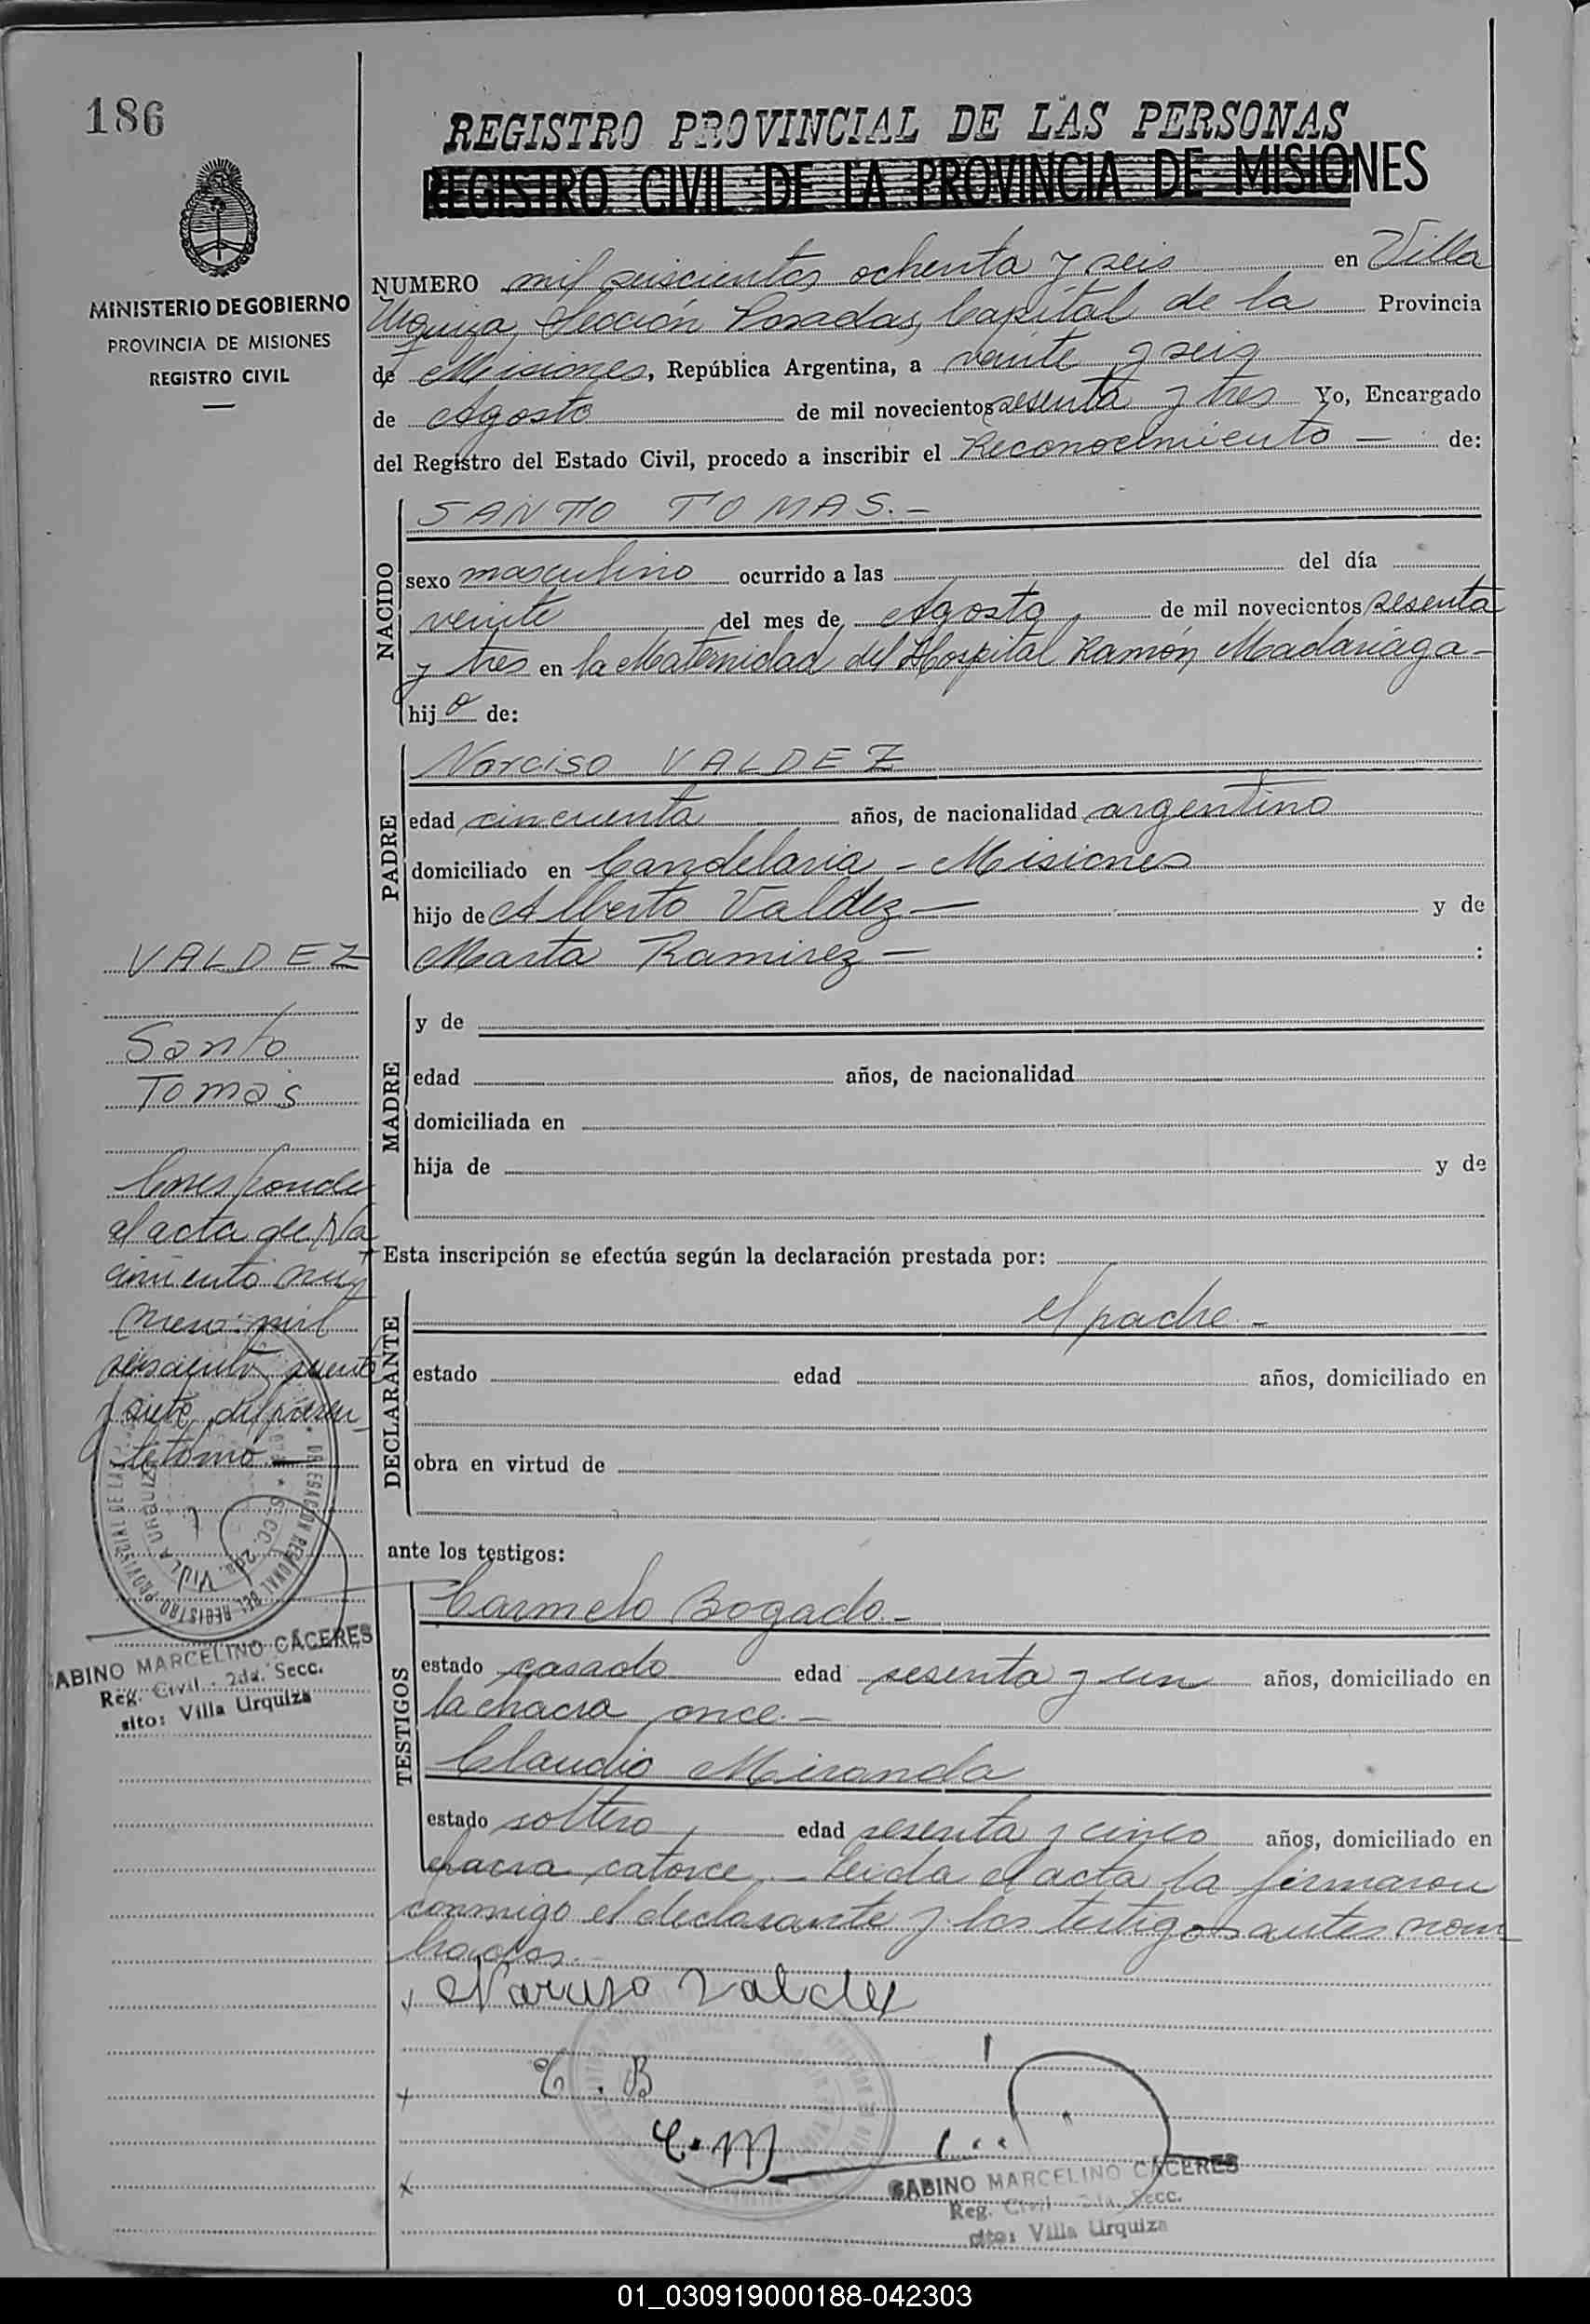 186
REGISTRO PROVINCIAL DE LAS PERSONAS
REGISTRO CIVIL DE LA PROVINCIA DE MISIONES
MINISTERIO DE GOBIERNO
PROVINCIA DE MISIONES
REGISTRO CIVIL
NUMERO mil seiscientos ochenta y seis en Villa
Urquiza, Sección Posadas, Capital de la Provincia
de Misiones, República Argentina, a veinte y seis
de Agosto de mil novecientos sesenta y tres Yo, Encargado
del Registro del Estado Civil, procedo a inscribir el Reconocimiento — de:
NACIDO
SANTO TOMAS.-
sexo masculino ocurrido a las del día
veinte del mes de Agosto, de mil novecientos sesenta
y tres en la Maternidad del Hospital Ramón Madariaga-
hijo de:
PADRE
Narciso VALDEZ
edad cincuenta años, de nacionalidad argentino
domiciliado en Candelaria - Misiones
hijo de Alberto Valdez — y de
Marta Ramirez — :
MADRE
y de
edad años, de nacionalidad
domiciliada en
hija de y de
Esta inscripción se efectúa según la declaración prestada por:
DECLARANTE
el padre.-
estado edad años, domiciliado en
obra en virtud de
ante los testigos:
TESTIGOS
Carmelo Bogado.-
estado casado edad sesenta y un años, domiciliado en
la chacra once.-
Claudio Miranda
estado soltero, edad sesenta y cinco años, domiciliado en
chacra catorce.- Leida el acta la firmaron
conmigo el declarante y los testigos antes nom
brados.-
Narciso Valdez
C. B
C. M
SABINO MARCELINO CACERES
Reg. Civil - 2da. Secc.
sito: Villa Urquiza
VALDEZ
Santo
Tomás
Corresponde
al acta de Na
cimiento nu
mero: mil
seiscientos
y siete, del presen
te tomo.—
DELEGACION REGIONAL DEL REGISTRO PROVINCIAL DE LAS
SECC. 2da. VILLA URQUIZA
SABINO MARCELINO CACERES
Reg. Civil - 2da. Secc.
sito: Villa Urquiza
01_030919000188-042303